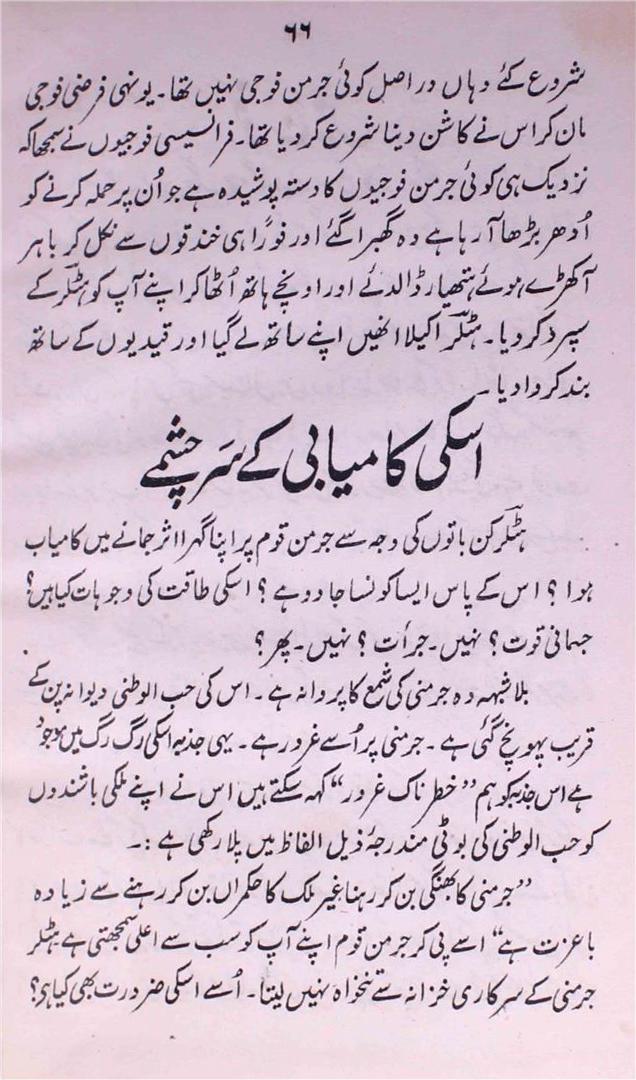 ۶۶
شروع کئے وہاں در اصل کوئی جرمن فوجی نہیں تھا۔ یونہی فرضی فوجی
مان کر اس نے کاشن دینا شروع کر دیا تھا۔ فرانسیسی فوجیوں نے سمجھا کہ
نزدیک ہی کوئی جرمن فوجیوں کا دستہ پوشیدہ ہے جو اُن پر حملہ کرنے کو
اُدھر بڑھا آ رہا ہے وہ گھبرا گئے اور فوراً ہی خندقوں سے نکل کر باہر
آ کھڑے ہوئے ہتھیار ڈالدئے اور اونچے ہاتھ اُٹھا کر اپنے آپ کو ہٹلر کے
سپرد کر دیا۔ ہٹلر اکیلا انھیں اپنے ساتھ لے گیا اور قیدیوں کے ساتھ
بند کروا دیا۔
اسکی کامیابی کے سَر چشمے
ہٹلر کن باتوں کی وجہ سے جرمن قوم پر اپنا گہرا اثر جمانے میں کامیاب
ہوا؟ اس کے پاس ایسا کونسا جادو ہے؟ اسکی طاقت کی وجوہات کیا ہیں؟
جسمانی قوت؟ نہیں۔ جرأت؟ نہیں۔ پھر؟
بلا شبہہ وہ جرمنی کی شمع کا پروانہ ہے۔ اس کی حب الوطنی دیوانہ پن کے
قریب پہونچ گئی ہے۔ جرمنی پر اُسے غرور ہے۔ یہی جذبہ اسکی رگ رگ میں موجود
ہے اس جذبہ کو ہم ”خطرناک غرور“ کہہ سکتے ہیں اس نے اپنے ملکی باشندوں
کو حب الوطنی کی بوٹی مندرجۂ ذیل الفاظ میں پلا رکھی ہے:۔
”جرمنی کا بھنگی بن کر رہنا غیر ملک کا حکمراں بن کر رہنے سے زیادہ
باعزت ہے“ اسے پی کر جرمن قوم اپنے آپ کو سب سے اعلیٰ سمجھتی ہے ہٹلر
جرمنی کے سرکاری خزانہ سے تنخواہ نہیں لیتا۔ اُسے اسکی ضرورت بھی کیا ہے؟